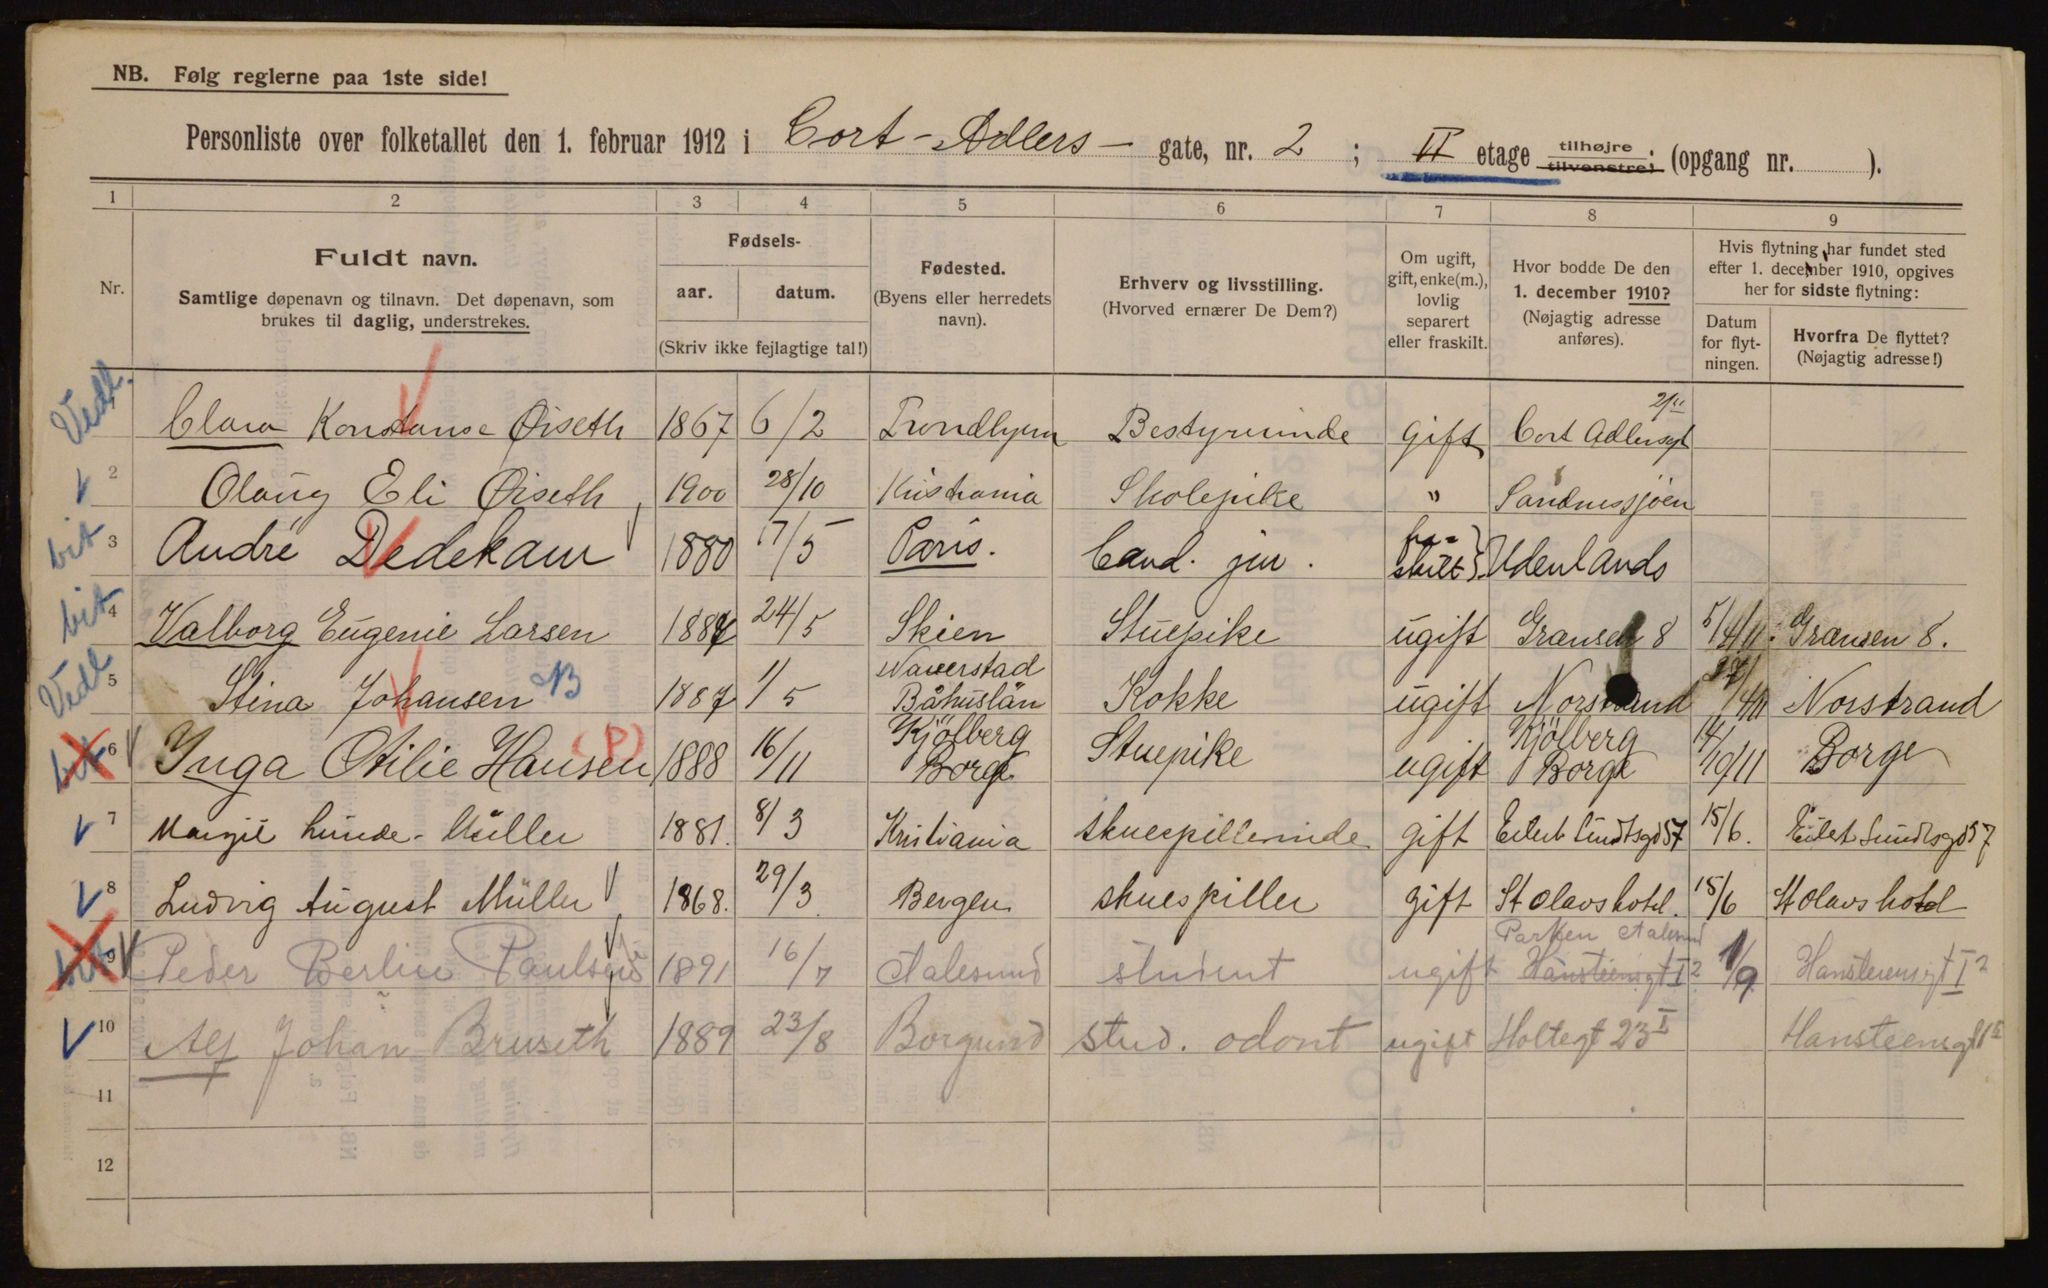 NB. Følg reglerne paa 1ste side!
Personliste over folketallet den 1. februar 1912 i Cort-Adlers- gate, nr. 2 ; II etage tilhøjre tilvenstre; (opgang nr. ).
1 2 3 4 5 6 7 8 9
Nr.
Fuldt navn.
Samtlige døpenavn og tilnavn. Det døpenavn, som
brukes til daglig, understrekes.
Fødsels-
aar. datum.
(Skriv ikke fejlagtige tal!)
Fødested.
(Byens eller herredets
navn).
Erhverv og livsstilling.
(Hvorved ernærer De Dem?)
Om ugift,
gift, enke(m.),
lovlig
separert
eller fraskilt.
Hvor bodde De den
1. december 1910?
(Nøjagtig adresse
anføres).
Hvis flytning har fundet sted
efter 1. december 1910, opgives
her for sidste flytning:
Datum
for flyt-
ningen.
Hvorfra De flyttet?
(Nøjagtig adresse!)
Vedl. Clara Konstanse Øiseth 1867 6/2 Trondhjem Bestyrerinde gift Cort Adlersgt 2/II
2 Olaug Eli Øiseth 1900 28/10 Kristiania Skolepike " Sandnessjøen
bit 3 André Dedekam 1880 17/5 Paris. Cand. jur. fra-skilt Udenlands
bit 4 Valborg Eugenie Larsen 1887 24/5 Skien Stuepike ugift Grænsen 8 5/4 11. Grænsen 8.
Vedl 5 Stina Johansen B 1887 1/5 Naverstad Båhuslän Kokke ugift Norstrand 27/4 11 Norstrand
bit 6 Inga Otilie Hansen (P) 1888 16/11 Kjölberg Borge Stuepike ugift Kjölberg Borge 14/10 11 Borge
7 Margit Lunde-Müller 1881. 8/3 Kristiania skuespillerinde gift Eilert Sundtsgd 57 15/6. Eilert Sundtsgd 57
8 Ludvig August Müller 1868. 29/3 Bergen skuespiller gift St Olavs hotel. 15/6 St Olavs hotel
bit 9 Peder Berlin Paulsen 1891 16/7 Aalesund student ugift Parken Aalesund Hansteensgt I 2 1/9 Hansteensgt I 2
10 Alf Johan Bruseth 1889 23/8 Borgund stud. odont ugift Holtegt 23 I Hansteensgt
11
12